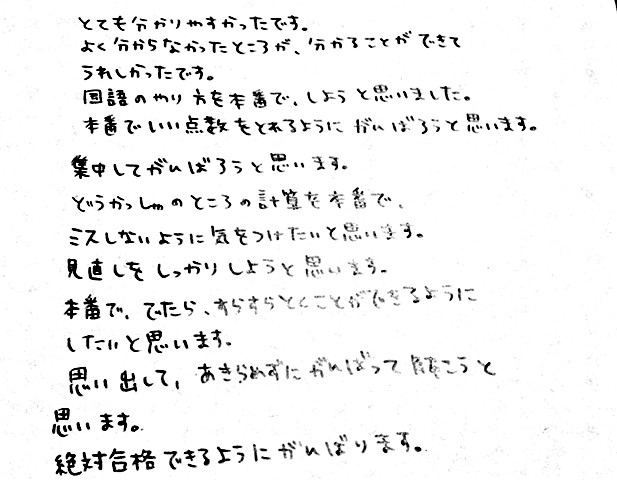 とても分かりやすかったです。
よく分からなかったところが、分かることができて
うれしかったです。
国語のやり方を本番で、しようと思いました。
本番でいい点数をとれるようにがんばろうと思います。
集中してがんばろうと思います。
どうかっしゅのところの計算を本番で、
ミスしないように気をつけたいと思います。
見直しをしっかりしようと思います。
本番で、でたら、すらすらとくことができるように
したいと思います。
思い出して、あきらめずにがんばって解こうと
思います。
絶対合格できるようにがんばります。